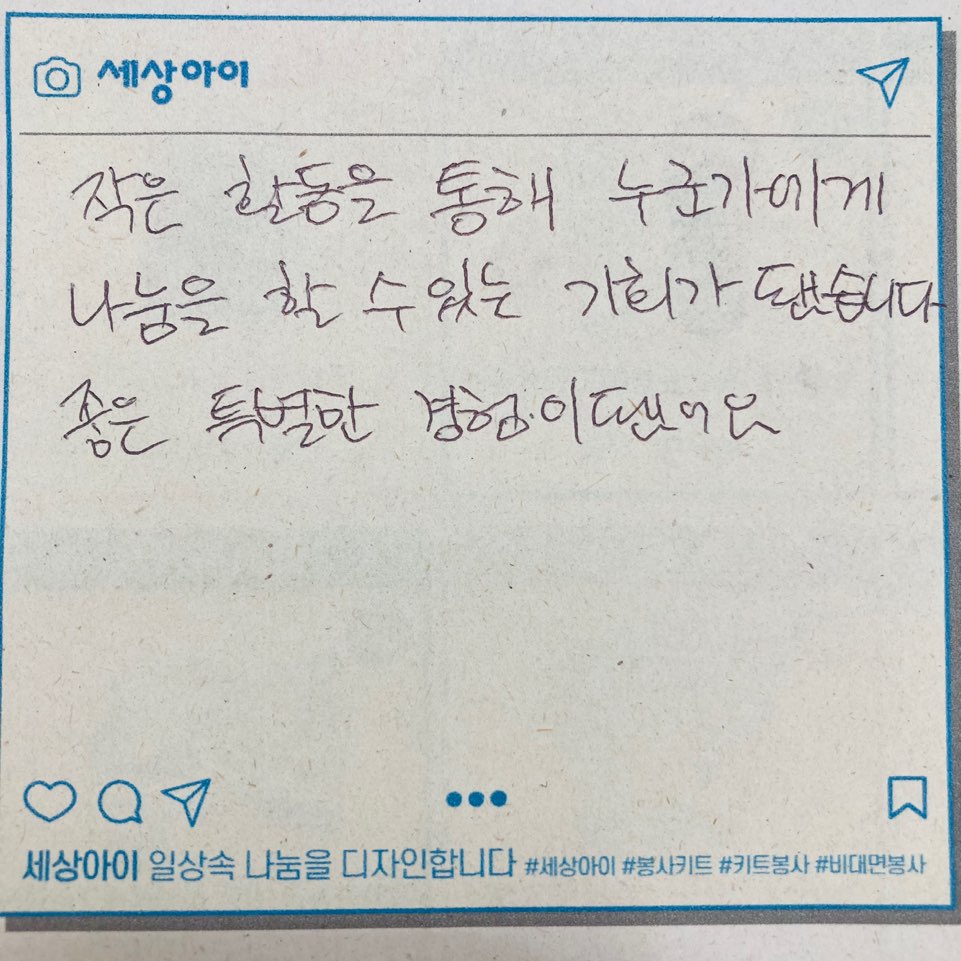 세상아이
작은 활동을 통해 누군가에게
나눔을 할 수 있는 기회가 됐습니다
좋은 특별한 경험이 됐어요
세상아이 일상속 나눔을 디자인합니다 #세상아이 #봉사키트 #키트봉사 #비대면봉사